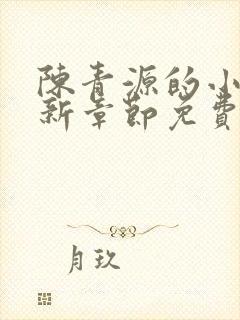 陳青源的小
新章節免費
月玖